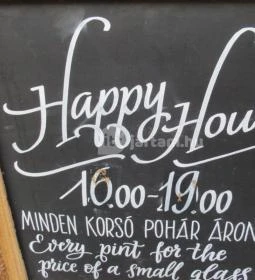 Happy Hou
16.00-19.00
MINDEN KORSÓ POHÁR ÁRON
Every pint for the
price of a small glass